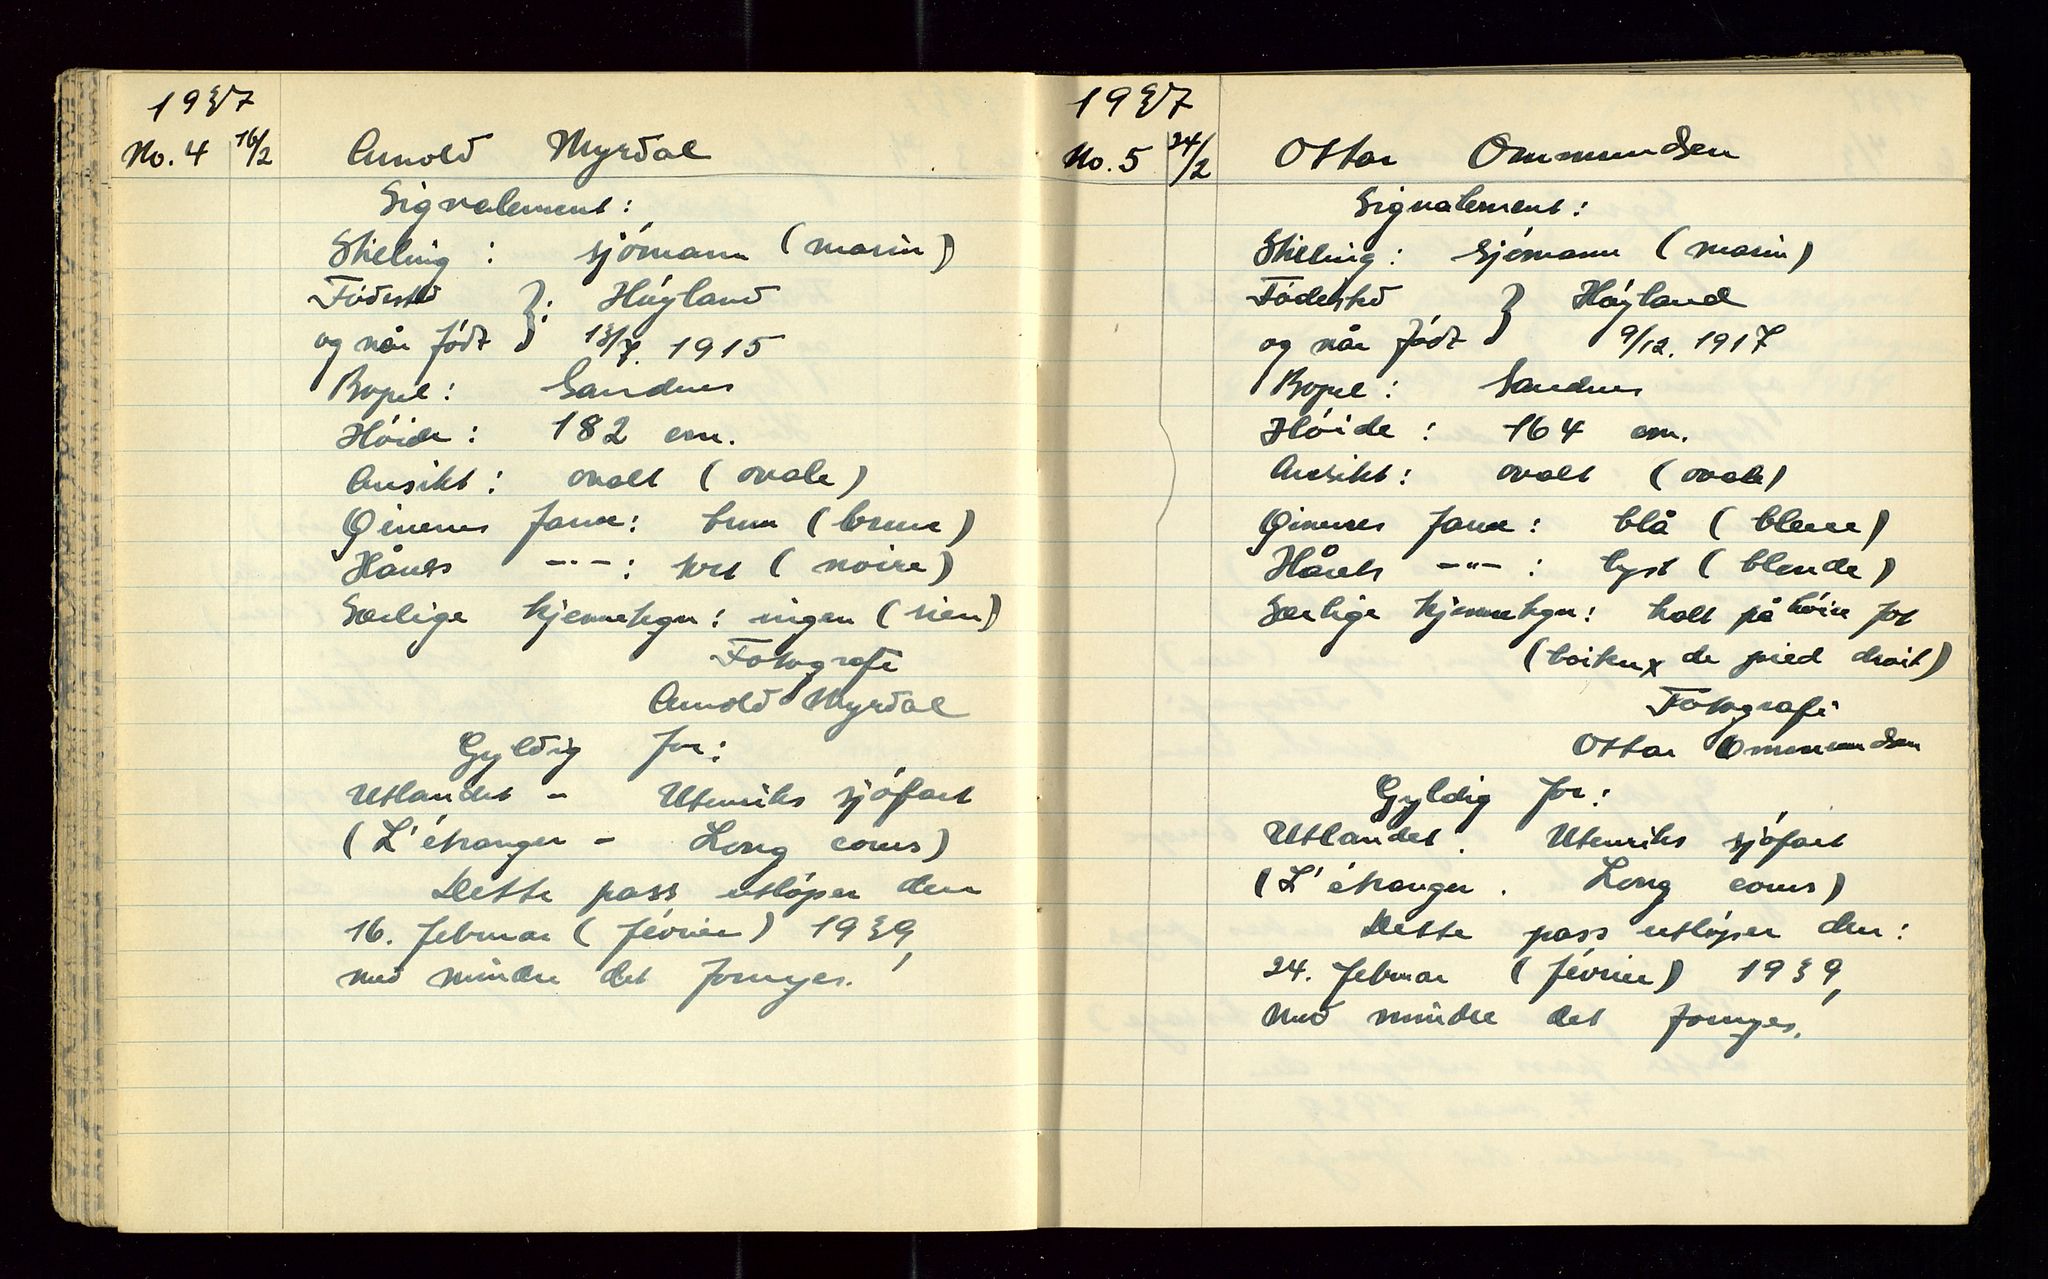 1937
No. 4 16/2 Arnold Myrdal
Signalement:
Stilling: sjómann (marin)
Fódested
og når fódt }: Hóyland
13/7. 1915
Bopel: Sandnes
Hóide: 182 cm.
Ansikt: ovalt (ovale)
Öinenes farve: brun (brune)
Hårets -"-: sort (noire)
Særlige kjennetegn: ingen (rien)
Fotografi
Arnold Myrdal
Gyldig for:
Utlandet - Utenriks sjófart
(L'étranger - Long cours)
Dette pass utlóper den
16. februar (février) 1939,
med mindre det fornyes.
1937
No. 5 24/2 Ottar Ommundsen
Signalement:
Stilling: Sjómann (marin)
Fódested
og når fódt } Hóyland
9/12. 1917
Bopel: Sandnes
Hóide: 164 cm.
Ansikt: ovalt (ovale)
Öinenes farve: blå (bleue)
Hårets -"-: lyst (blonde)
Særlige kjennetegn: halt på hóire fot
(boiteux de pied droit)
Fotografi
Ottar Ommundsen
Gyldig for:
Utlandet. Utenriks sjófart
(L'étranger. Long cours)
Dette pass utlóper den:
24. februar (février) 1939,
med mindre det fornyes.